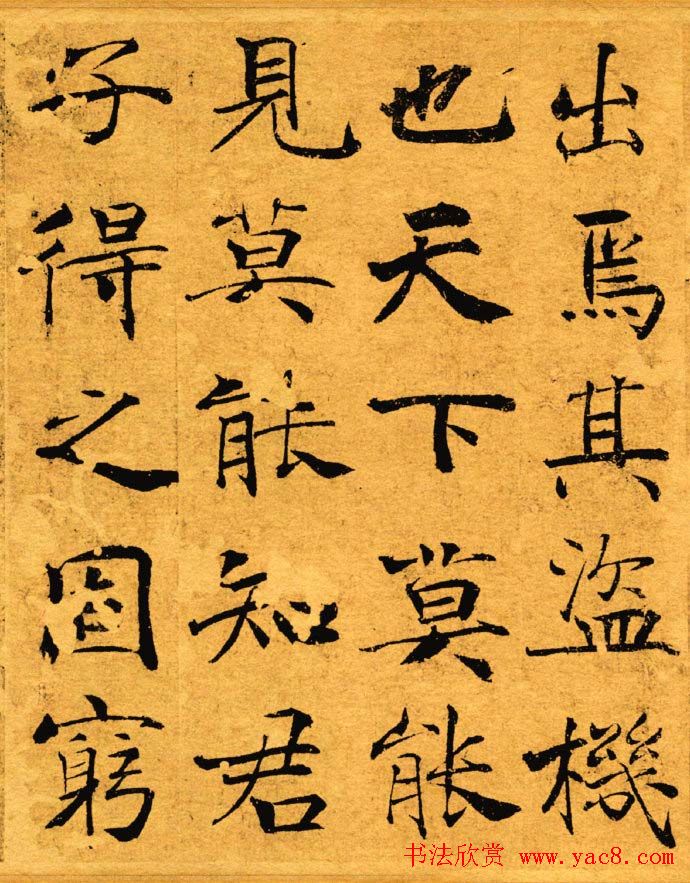 出焉其盜機
也天下莫能
見莫能知君
子得之固窮
书法欣赏 www.yac8.com